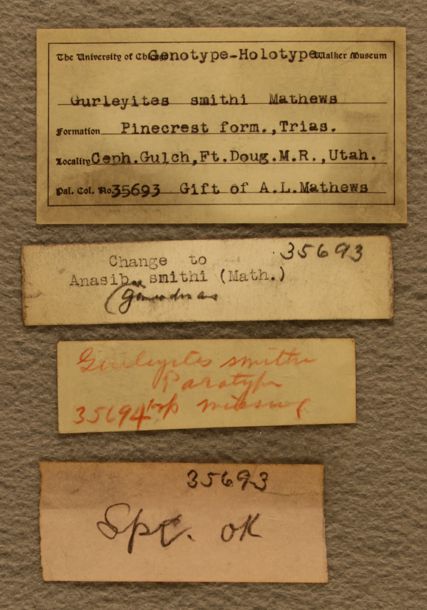 The University of Chi Genotype-Holotype Walker Museum
Gurleyites smithi Mathews
Formation Pinecrest form., Trias.
Locality Ceph.Gulch,Ft.Doug.M.R.,Utah.
Pal. Col. No 35693 Gift of A.L.Mathews
35693
Change to
Anasib smithi (Math.)
Gurleyites smithi
Paratype
35694 missing
35693
Spc. OK